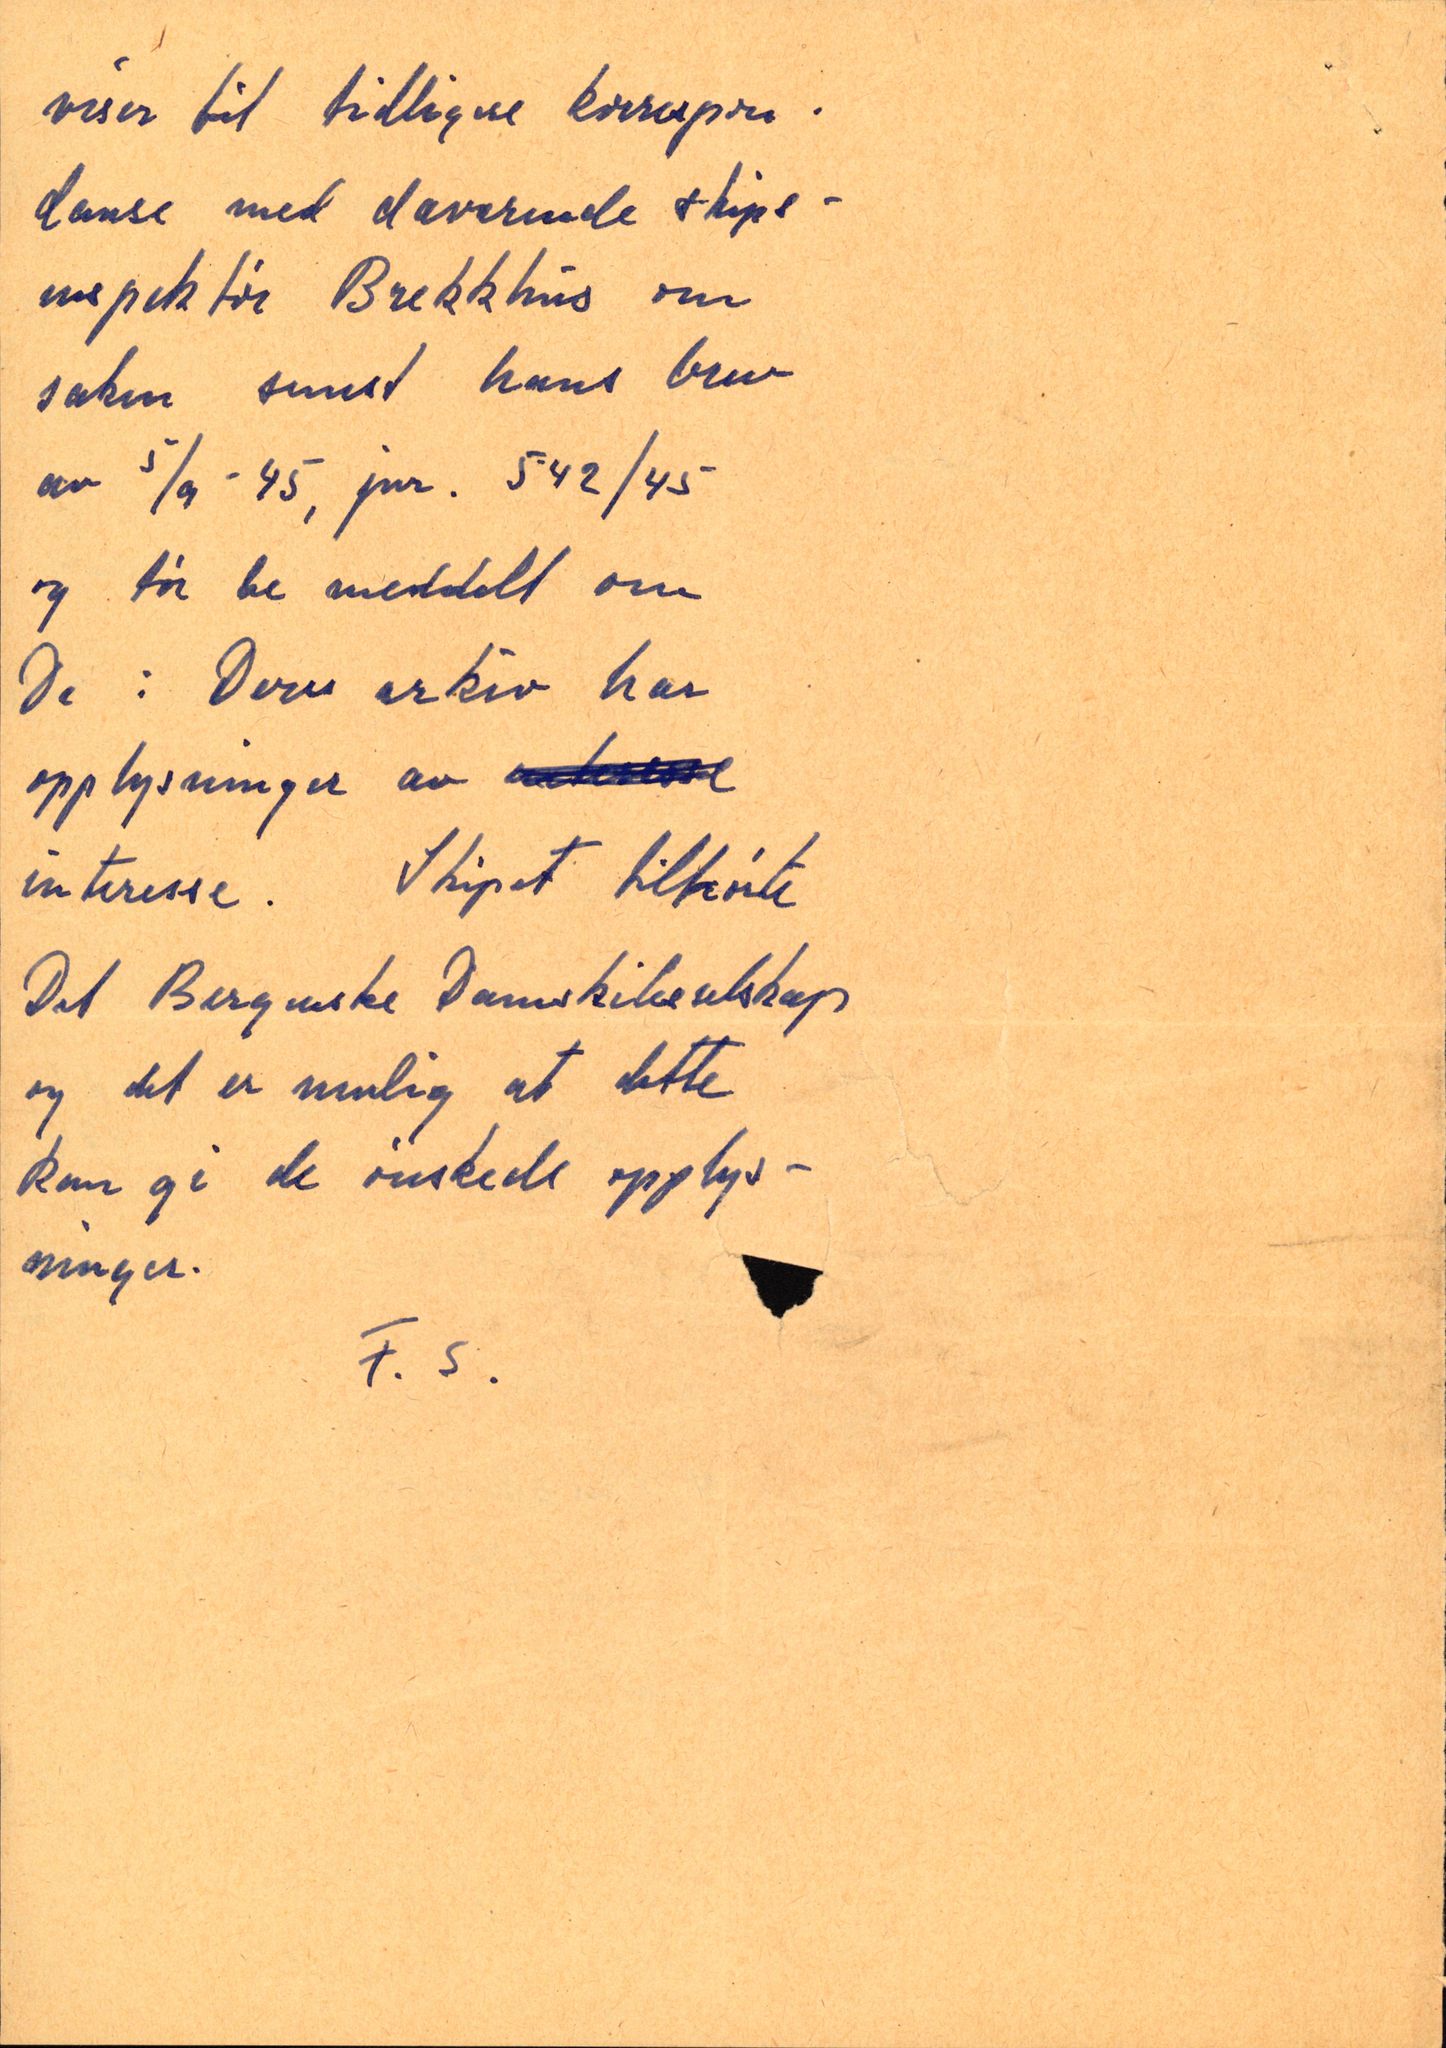 viser til tidligere korrespon-
danse med daværende skips-
inspektør Brekkhus om
saken senest hans brev
av 5/9-45, jnr. 542/45
og tør be meddelt om
De i Deres arkiv har
opplysninger av interesse
interesse. Skipet tilhørte
Det Bergenske Dampskibsselskap
og det er mulig at dette
kan gi de ønskede opplys-
ninger.
F. S.